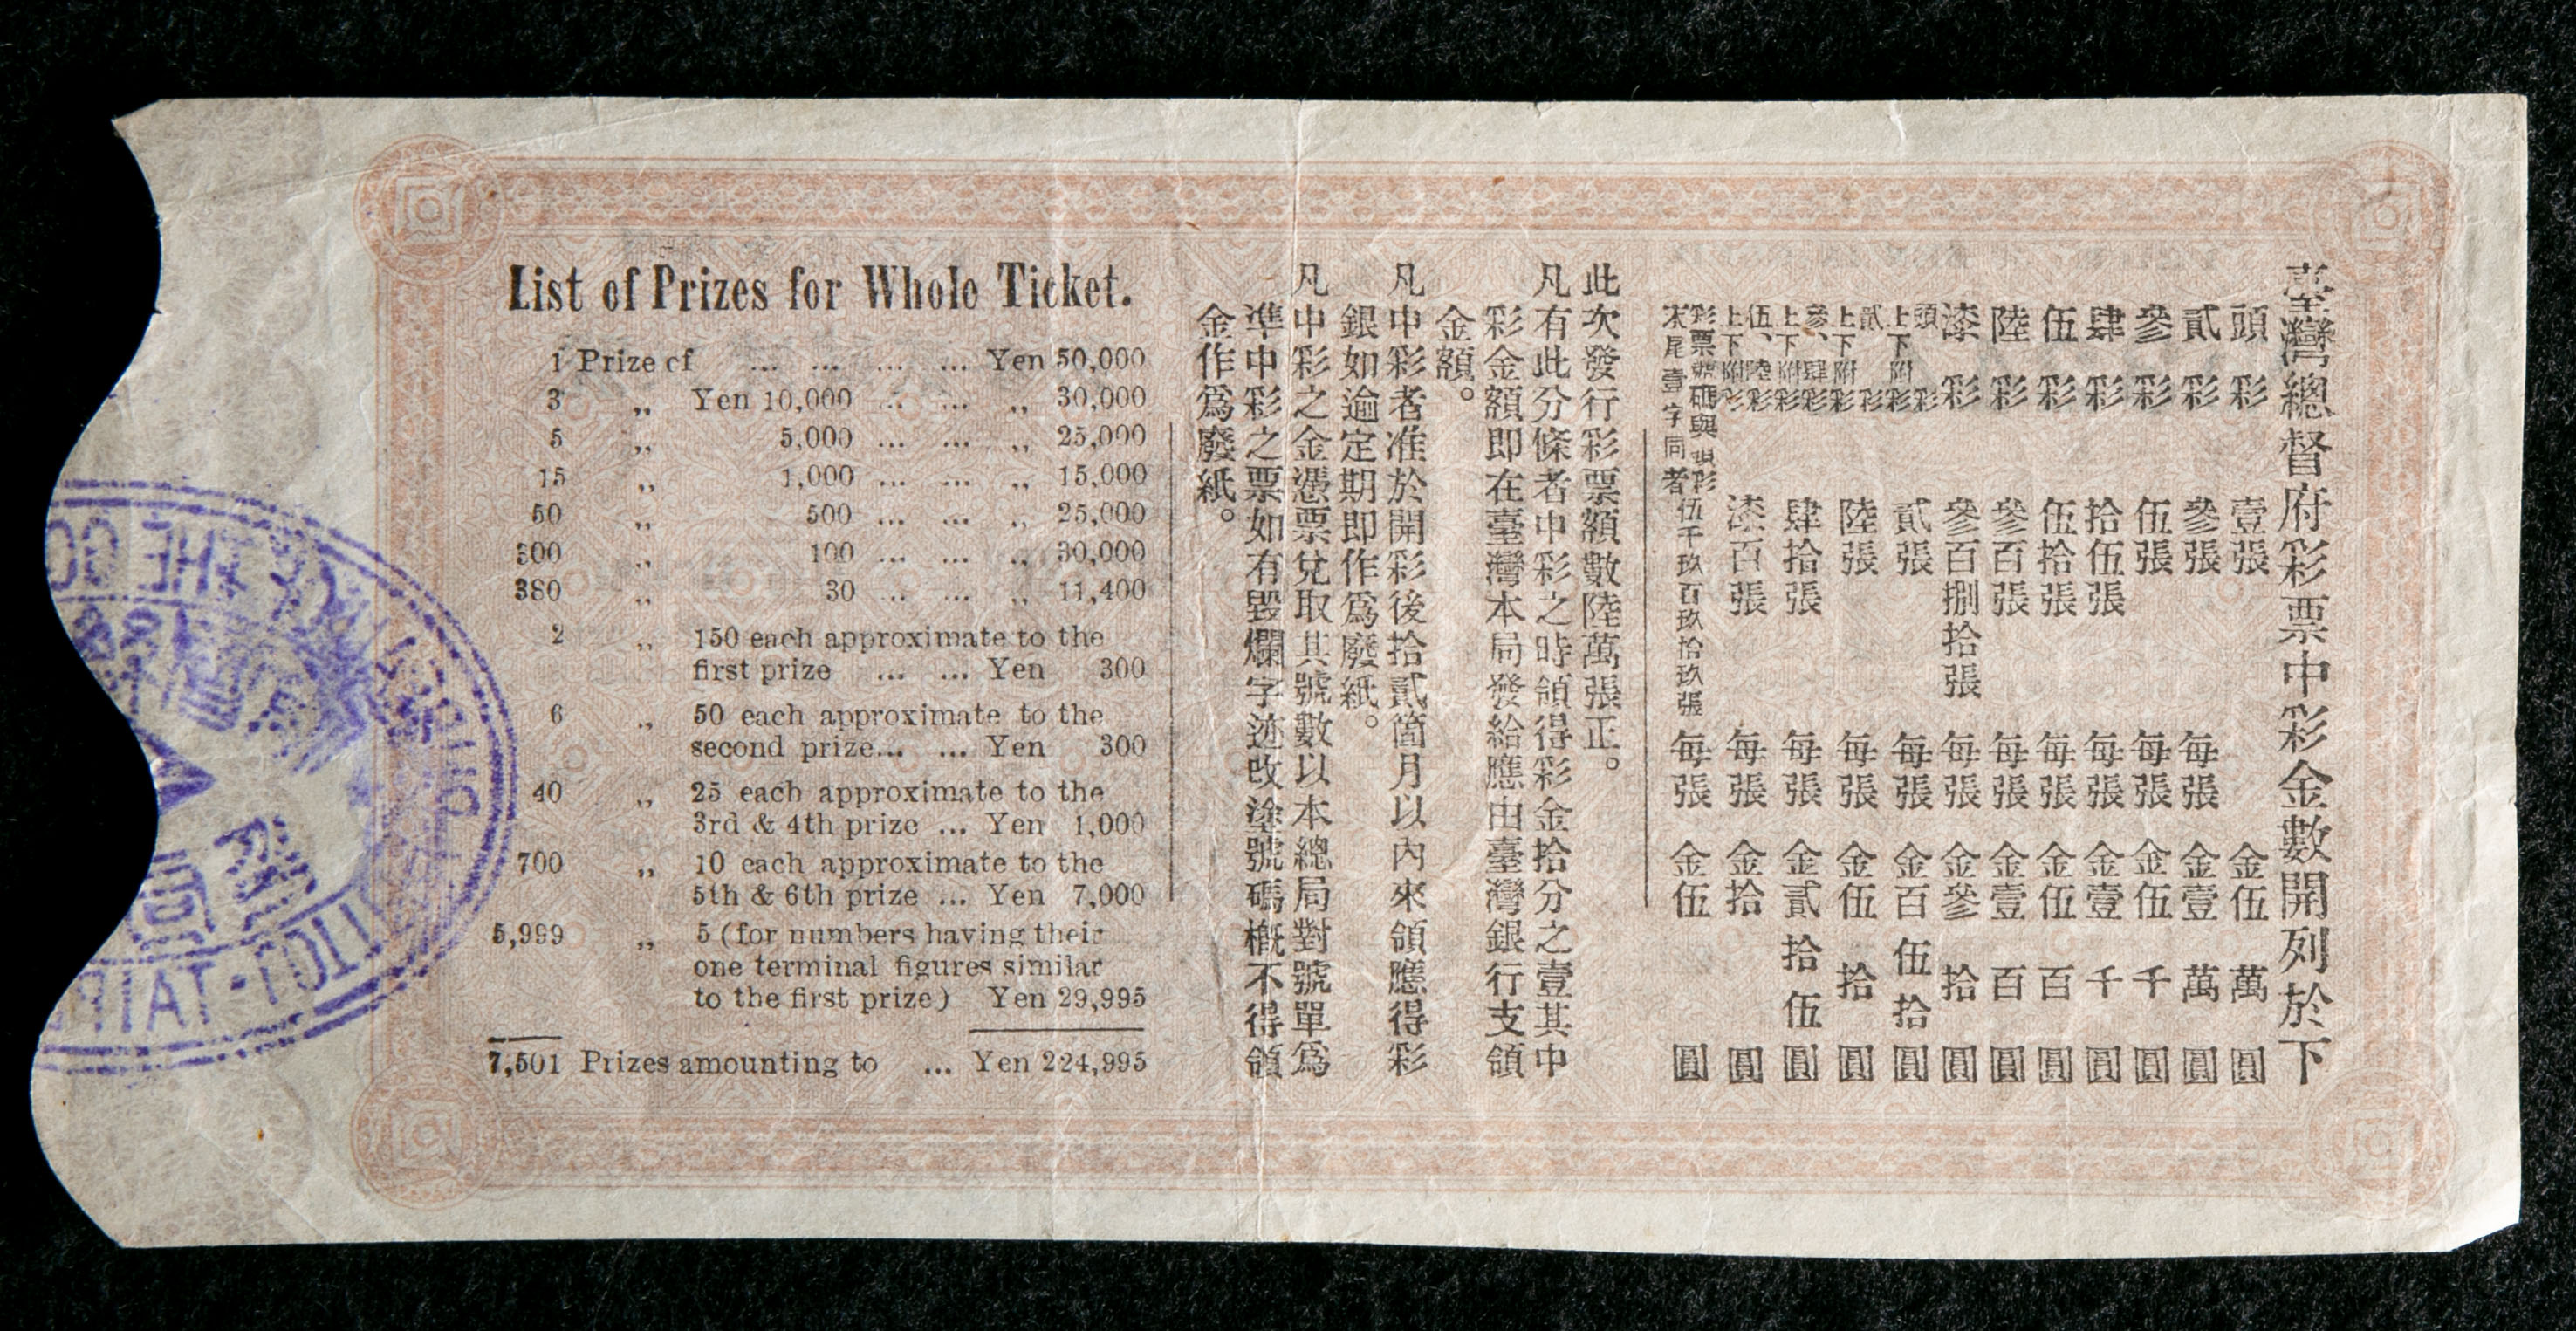 List of Prizes for Whole Ticket.
1 Prize of ... ... ... ... Yen 50,000
3 „ Yen 10,000 ... ... „ 30,000
5 „ 5,000 ... ... „ 25,000
15 „ 1,000 ... ... „ 15,000
50 „ 500 ... ... „ 25,000
300 „ 100 ... ... „ 30,000
380 „ 30 ... ... „ 11,400
2 „ 150 each approximate to the
first prize ... ... Yen 300
6 „ 50 each approximate to the
second prize... ... Yen 300
40 „ 25 each approximate to the
3rd & 4th prize ... Yen 1,000
700 „ 10 each approximate to the
5th & 6th prize ... Yen 7,000
5,999 „ 5 (for numbers having their
one terminal figures similar
to the first prize) Yen 29,995
7,501 Prizes amounting to ... Yen 224,995
臺灣總督府彩票中彩金數開列於下
頭彩 壹張 金伍萬圓
貳彩 參張 每張 金壹萬圓
參彩 伍張 每張 金伍千圓
肆彩 拾伍張 每張 金壹千圓
伍彩 伍拾張 每張 金伍百圓
陸彩 參百張 每張 金壹百圓
漆彩 參百捌拾張 每張 金參拾圓
頭彩上下附彩 貳張 每張 金百伍拾圓
貳彩上下附彩 陸張 每張 金伍拾圓
參、肆彩上下附彩 肆拾張 每張 金貳拾伍圓
伍、陸彩上下附彩 漆百張 每張 金拾圓
彩票號碼與頭彩末尾壹字同者 伍千玖百玖拾玖張 每張 金伍圓
此次發行彩票額數陸萬張正。
凡有此分條者中彩之時領得彩金拾分之壹其中
彩金額即在臺灣本局發給應由臺灣銀行支領
金額。
凡中彩者准於開彩後拾貳箇月以內來領應得彩
銀如逾定期即作爲廢紙。
凡中彩之金憑票兌取其號數以本總局對號單爲
準中彩之票如有毀爛字迹改塗號碼槪不得領
金作爲廢紙。